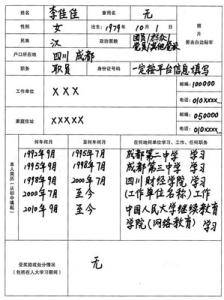 姓名 李佳佳 曾用名 无
性别 女 出生: 1979年10月1日
民族 汉 政治面貌 团员/群众/党员/其他党派
照片
户口所在地 四川 成都
职务 职员 身份证号码 一定按平台信息填写
工作单位 XXX 邮编:100000
电话 010XXXX
家庭住址 XXXXX 邮编:050000
电话 010XXXX
本人简历（从初中填起）
何年何月 至何年何月 在何地何单位学习、工作、任何职务
1992年9月 1995年7月 成都第二中学 学习
1995年9月 1998年7月 成都第三中学 学习
1998年9月 2000年7月 四川财经学院 学习
2000年7月 至今 (工作单位名称) 工作
2010年9月 至今 中国人民大学继续教育学院(网络教育) 学习
受奖励或处分情况（包括在人大学习期间）
无